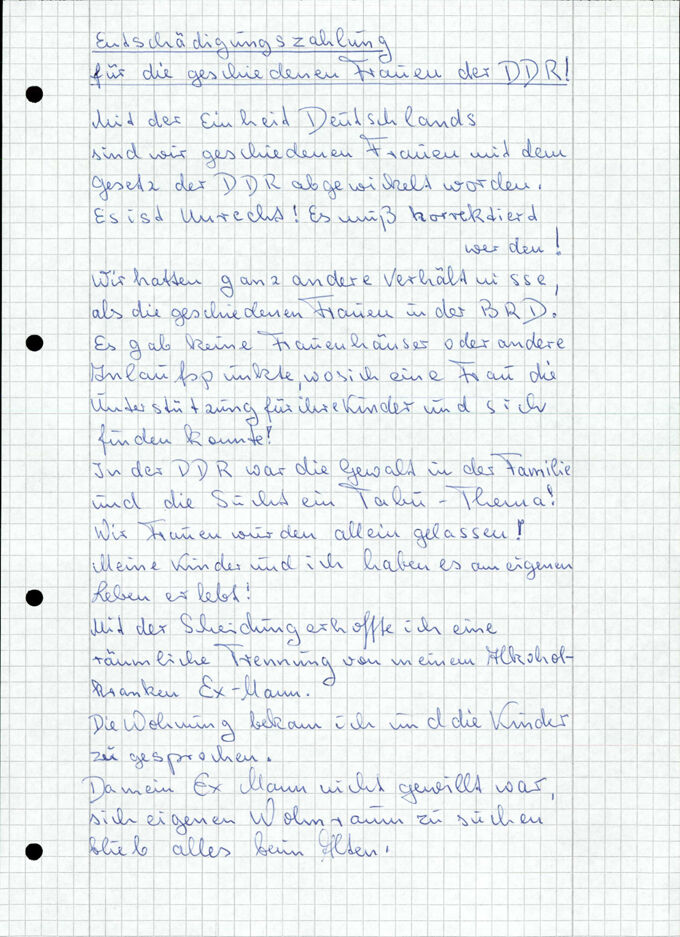 Entschädigungszahlung
für die geschiedenen Frauen der DDR!
Mit der Einheit Deutschlands
sind wir geschiedenen Frauen mit dem
Gesetz der DDR abgewickelt worden.
Es ist Unrecht! Es muß korrektiert
werden!
Wir hatten ganz andere Verhältnisse,
als die geschiedenen Frauen in der BRD.
Es gab keine Frauenhäuser oder andere
Anlaufspunkte, wo sich eine Frau die
Unterstützung für ihre Kinder und sich
finden konnte!
In der DDR war die Gewalt in der Familie
und die Sucht ein Tabu-Thema!
Wir Frauen wurden allein gelassen!
Meine Kinder und ich haben es am eigenen
Leben erlebt!
Mit der Scheidung erhoffte ich eine
räumliche Trennung von meinem Alkohol-
kranken Ex-Mann.
Die Wohnung bekam ich und die Kinder
zu gesprochen.
Da mein Ex Mann nicht gewillt war,
sich eigenen Wohnraum zu suchen
blieb alles beim Alten.